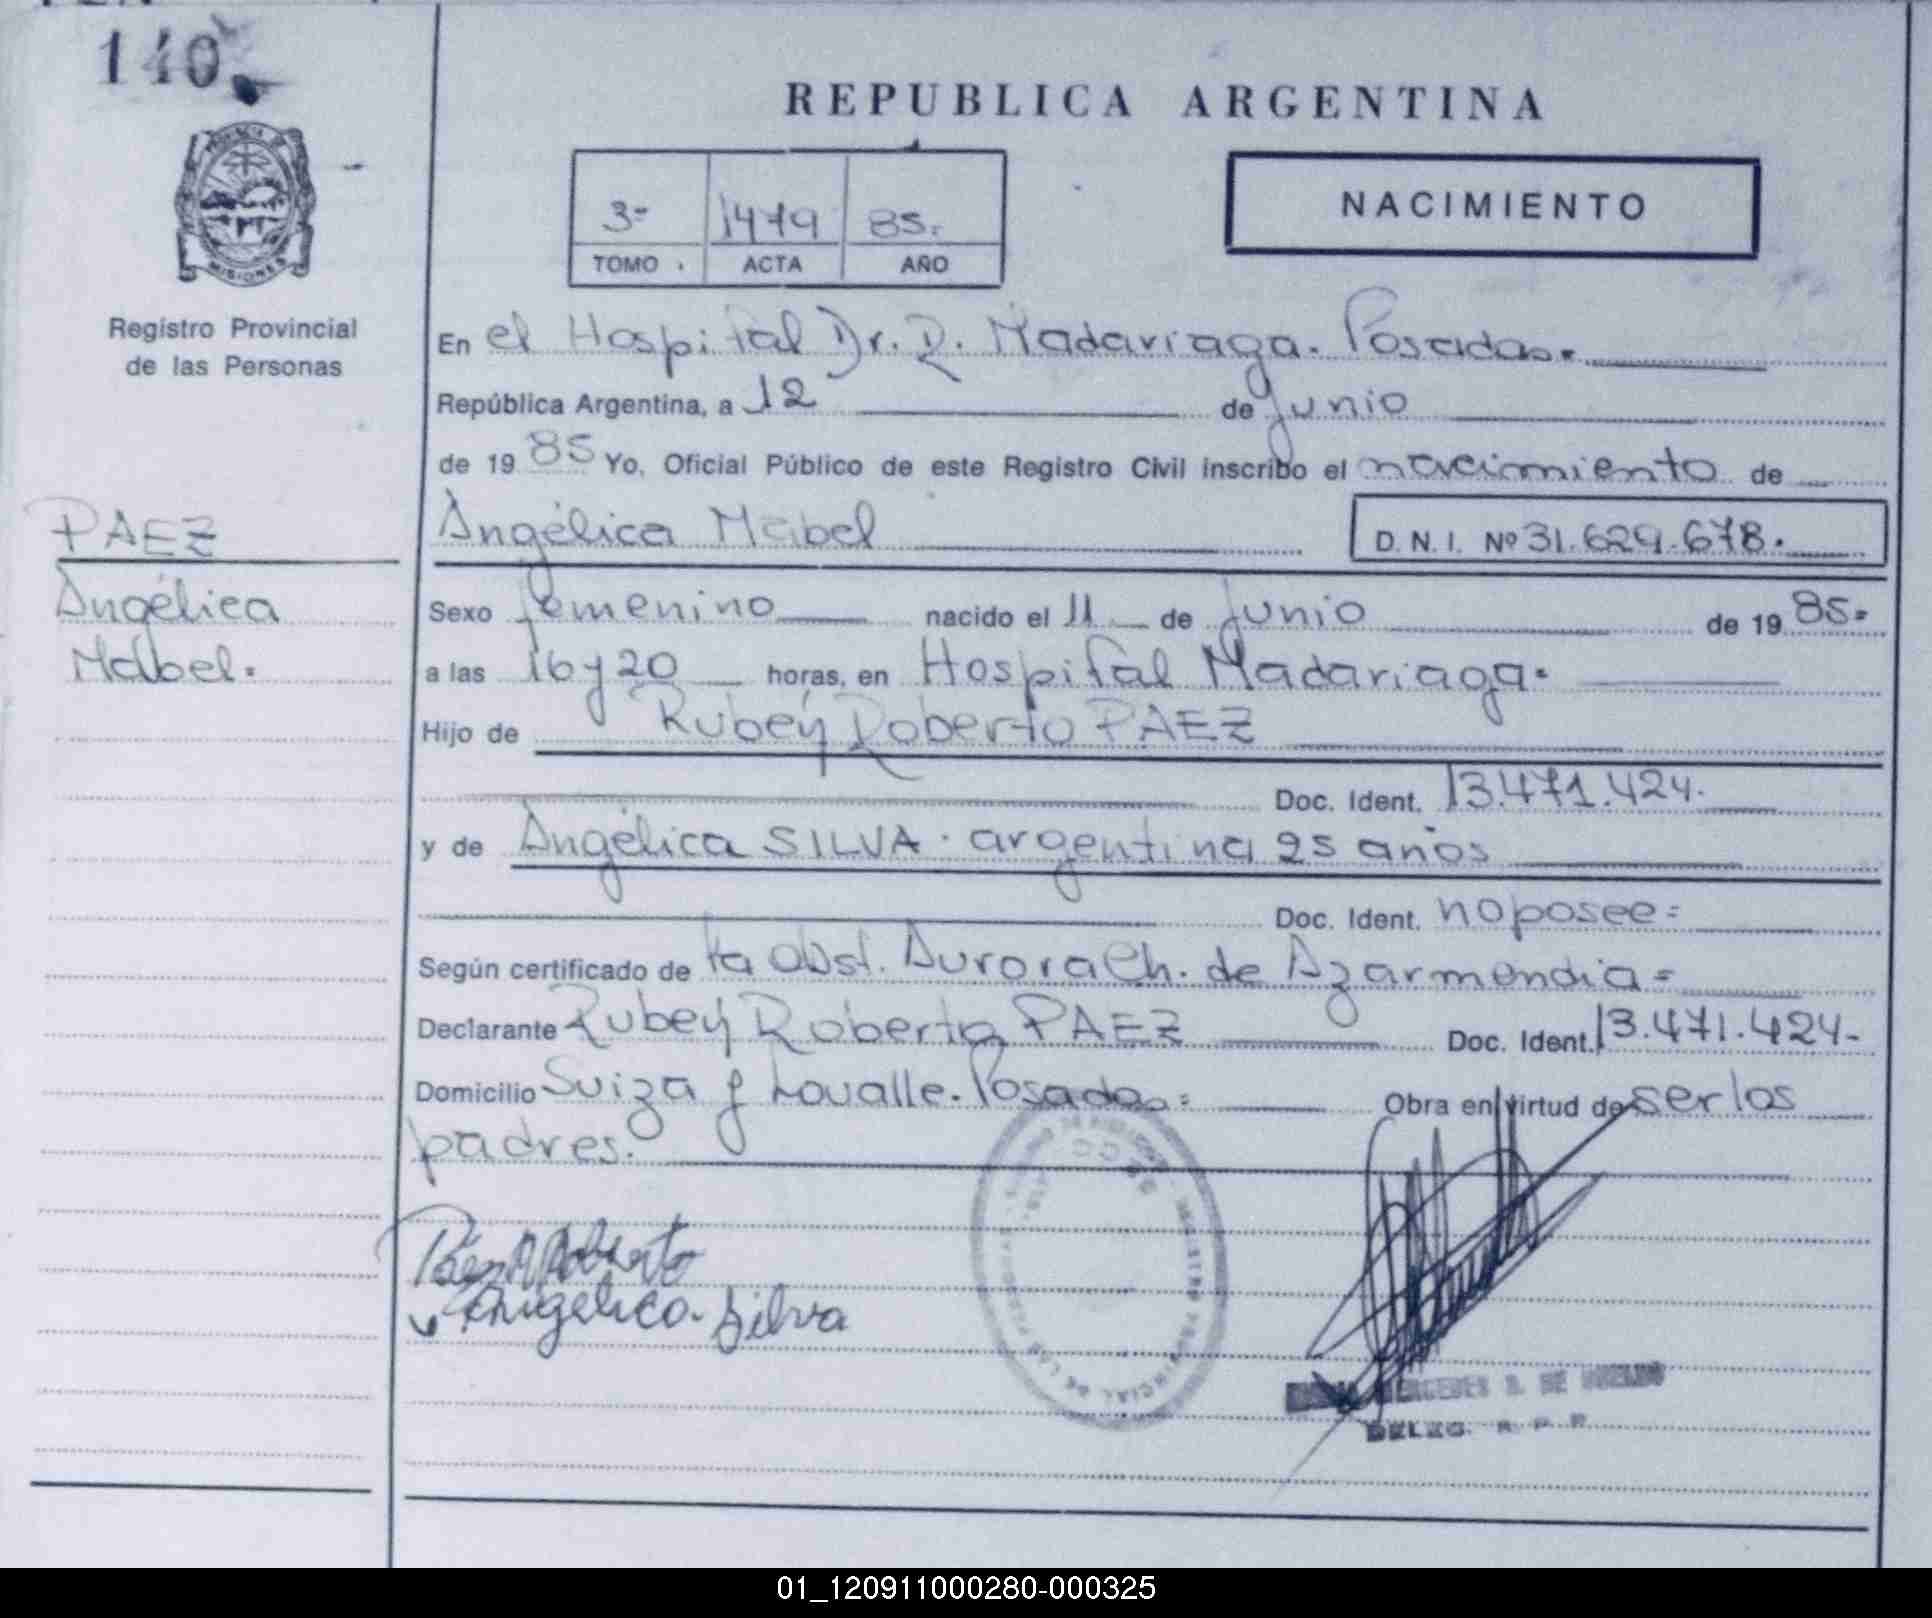 140
PROVINCIA DE
MISIONES
Registro Provincial
de las Personas
PAEZ
Angélica
Mabel.
REPUBLICA ARGENTINA
3- 1479 85.
TOMO ACTA AÑO
NACIMIENTO
En el Hospital Dr. R. Madariaga. Posadas.
República Argentina, a 12 de junio
de 19 85 Yo, Oficial Público de este Registro Civil inscribo el nacimiento de
Angélica Mabel
D. N. I. Nº 31.629.678.
Sexo femenino nacido el 11 de junio de 19 85-
a las 16 y 20 horas, en Hospital Madariaga.
Hijo de Rubey Roberto PAEZ
Doc. Ident. 13.471.424.
y de Angélica SILVA. argentina 25 años
Doc. Ident. no posee=
Según certificado de la obst. Aurora Ch. de Azarmendia=
Declarante Rubey Roberto PAEZ Doc. Ident. 13.471.424-
Domicilio Suiza y Lavalle. Posadas= Obra en virtud de ser los
padres.
Páez R Roberto
Angélica Silva
REGISTRO PROVINCIAL DE LAS PERSONAS
MERCEDES
DELEG. R. P. P.
01_120911000280-000325